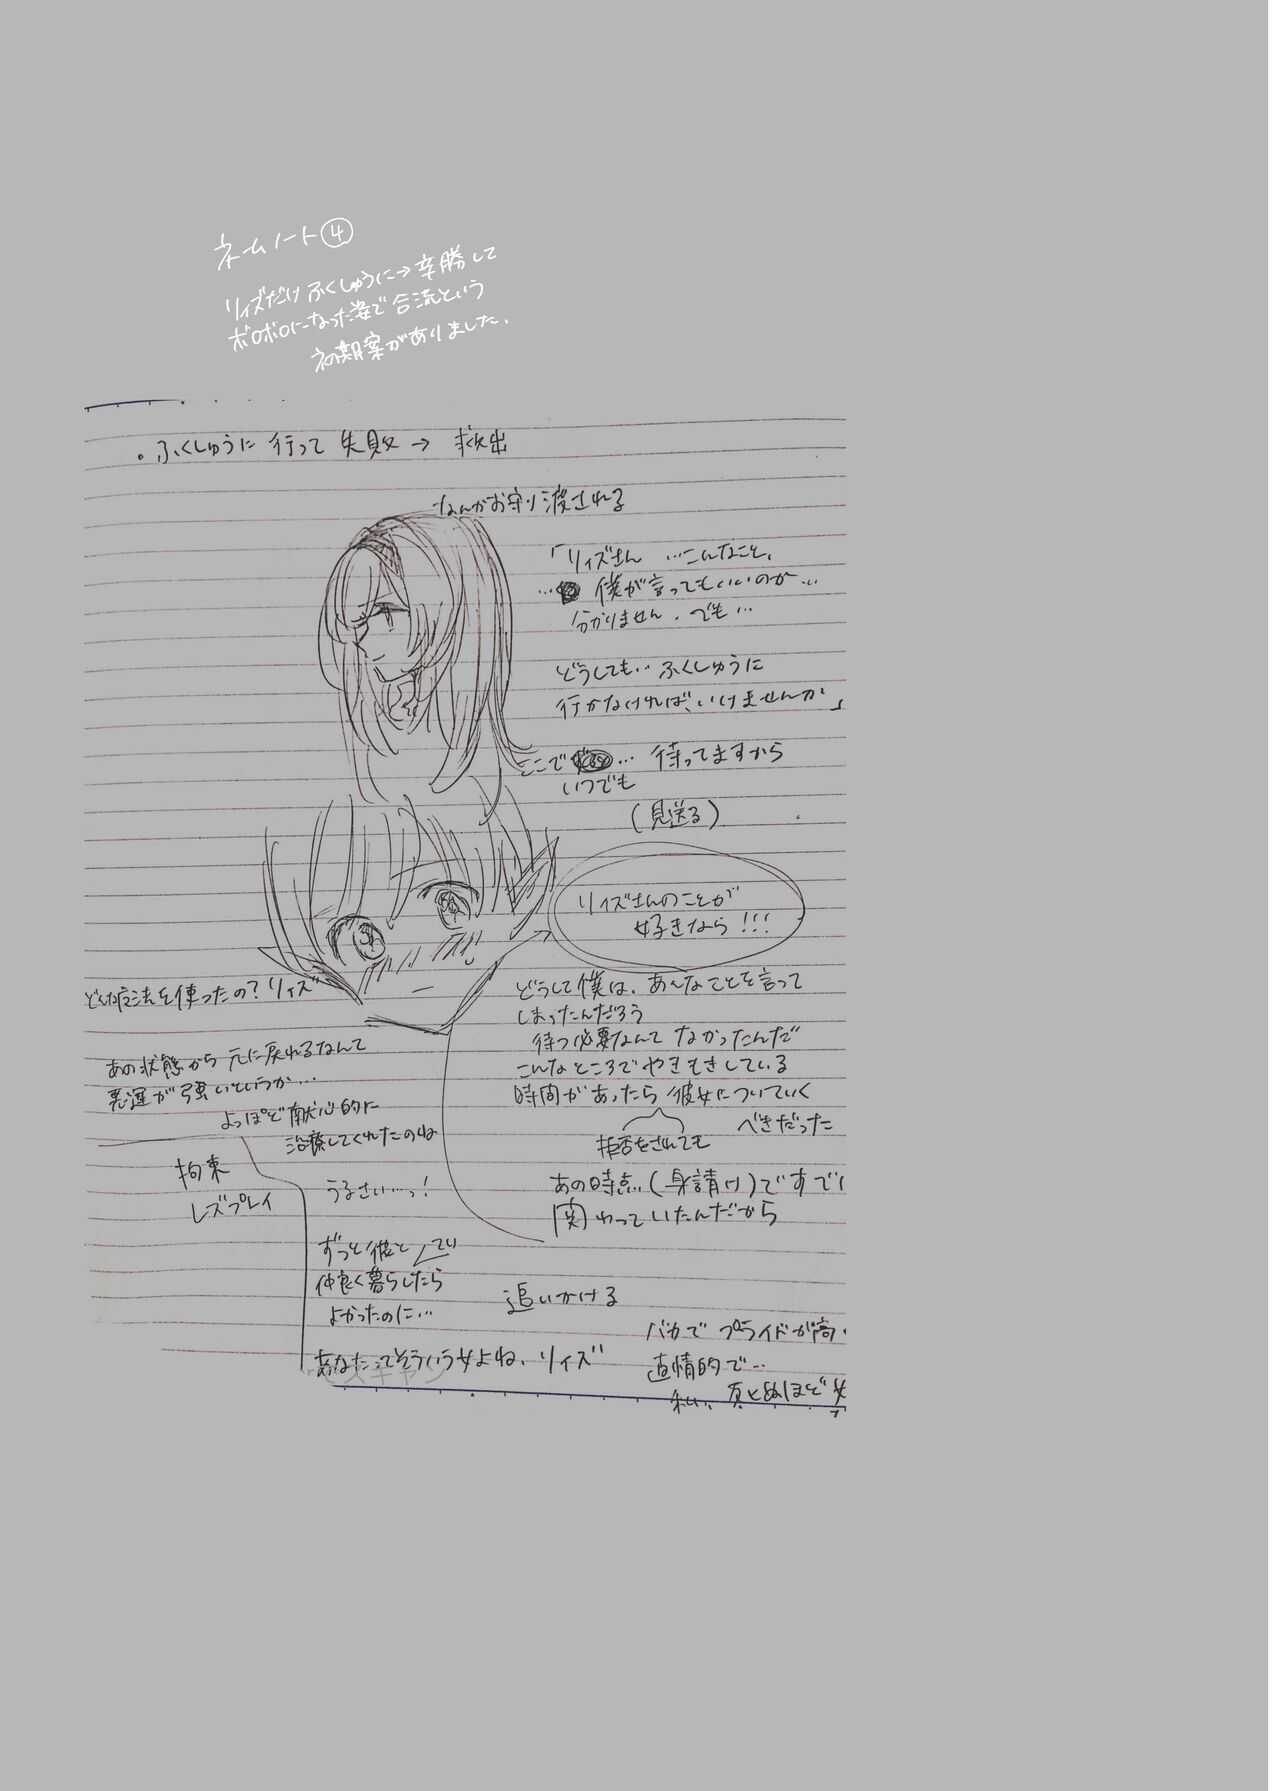 ネームノート④
リィズだけふくしゅうに→辛勝して
ボロボロになった姿で合流という
初期案がありました.
・ふくしゅうに 行って 失敗 → 救出
なんかお守り渡される
「リィズさん …こんなこと、
… 僕が言ってもいいのか…
分かりません.でも…
どうしても‥ ふくしゅうに
行かなければ、いけませんか」
ここで … 待ってますから
いつでも
(見送る)
リィズさんのことが
好きなら!!!
どうして僕は、あんなことを言って
しまったんだろう
待つ必要なんて なかったんだ
こんなところでやきもきしている
時間があったら 彼女についていく
べきだった
拒否をされても
あの時点(身請け)ですでに
関わっていたんだから
追いかける
どんな療法を使ったの?リィズ
あの状態から元に戻れるなんて
悪運が強いというか…
よっぽど献心的に
治療してくれたのね
拘束
レズプレイ
うるさい…っ!
ずっと彼と
仲良く暮らしたら
よかったのに…
あなたってそういう女よね、リィズ
バカで プライドが高
直情的で…